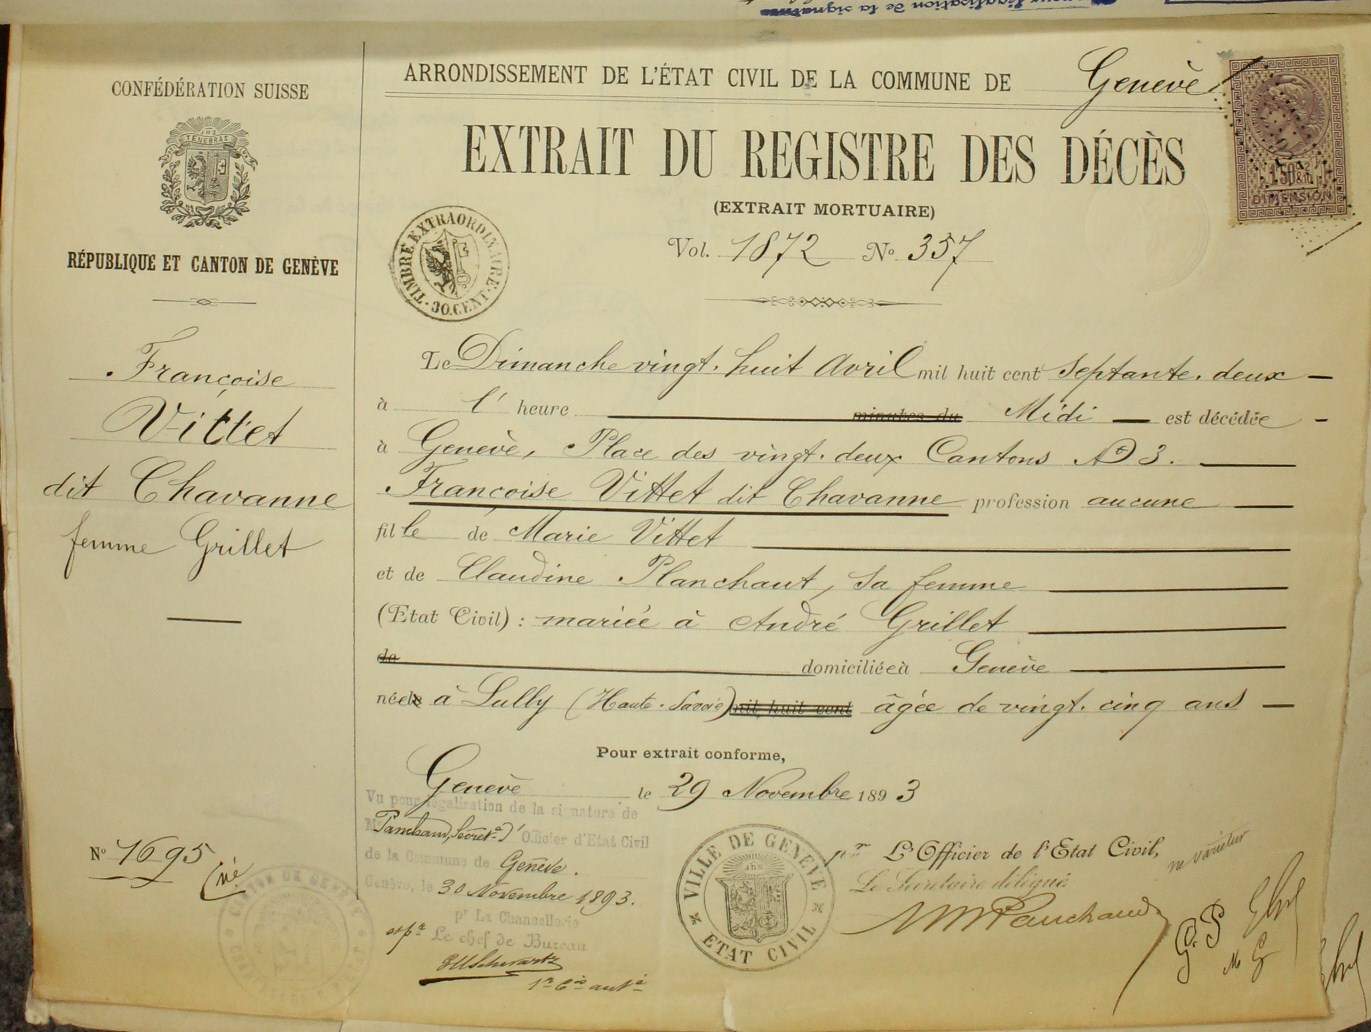 légalisation de la signature
CONFÉDÉRATION SUISSE
RÉPUBLIQUE ET CANTON DE GENÈVE
Françoise
Vittet
dit Chavanne
femme Grillet
N° 1695
ARRONDISSEMENT DE L'ÉTAT CIVIL DE LA COMMUNE DE Genève
EXTRAIT DU REGISTRE DES DÉCÈS
(EXTRAIT MORTUAIRE)
Vol. 1872 N° 357
TIMBRE EXTRAORDINAIRE
30 CENT.
DIMENSION
Le Dimanche vingt-huit Avril mil huit cent Septante-deux
à l'heure minutes du Midi est décédée
à Genève, Place des vingt-deux Cantons N° 3.
Françoise Vittet dit Chavanne profession aucune
fille de Marie Vittet
et de Claudine Planchaut, sa femme
(Etat Civil) : mariée à André Grillet
de domiciliée à Genève
née à Lully (Haute-Savoie) mil huit cent âgée de vingt-cinq ans
Pour extrait conforme,
Genève le 29 Novembre 1893
Vu pour légalisation de la signature de
M Panchaud, Secret. d' Officier d'Etat Civil
de la Commune de Genève.
Genève, le 30 Novembre 1893.
pr La Chancellerie
Le chef de Bureau
VILLE DE GENÈVE
ETAT CIVIL
pr L'Officier de l'Etat Civil,
Le Secrétaire délégué
Panchaud
ne varietur